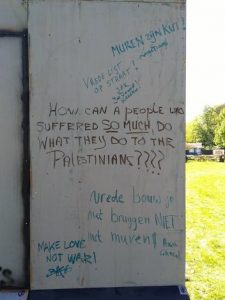 MUREN ZIJN KUT!
VREDE LIGT
OP STRAAT!
HOW CAN A PEOPLE WHO
SUFFERED SO MUCH, DO
WHAT THEY DO TO THE
PALESTINIANS????
Vrede bouw je
met bruggen NIET
met muren!
MAKE LOVE
NOT WAR!